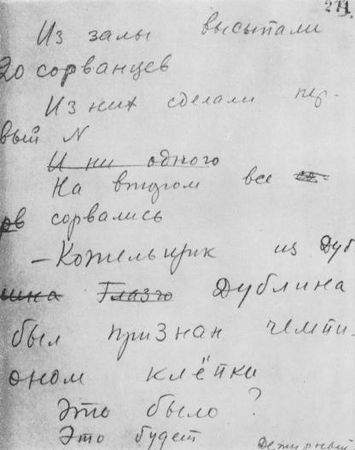 271.
Из залы высыпали
20 сорванцев
Из них сделали пер-
вый N
И ни одного
На втором все
сорвались
— Котельщик из Дуб
лина Глазго Дублина
был признан чемпи-
оном клётки
Это было?
Это будет